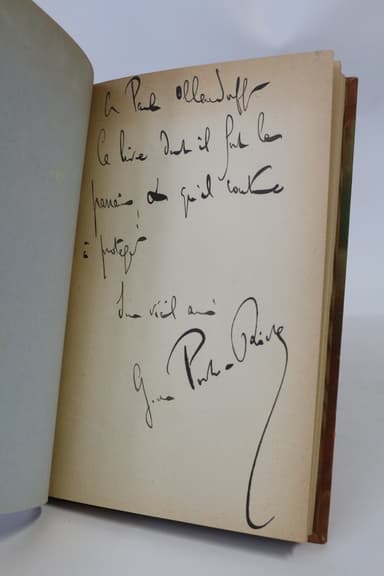 à Paul Ollendorff
Ce livre dont il fut le
parrain et qu'il continue
à protéger
Son vieil ami
G. de Porto-Riche